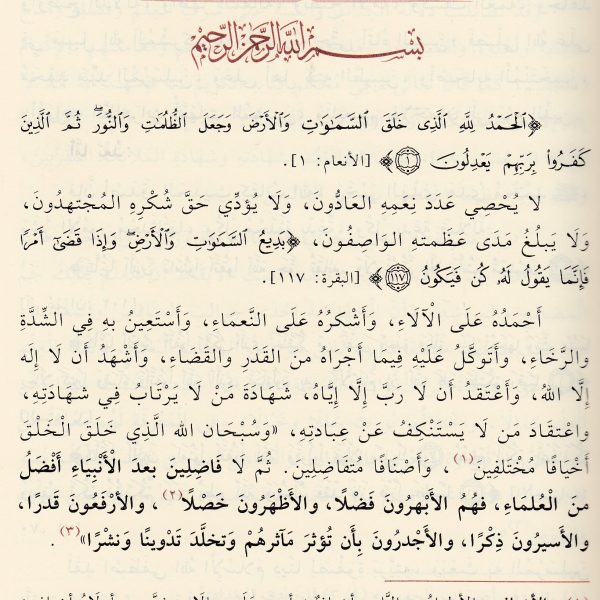 بِسْمِ اللَّهِ الرَّحْمَنِ الرَّحِيمِ
﴿ٱلْحَمْدُ لِلَّهِ ٱلَّذِى خَلَقَ ٱلسَّمَٰوَٰتِ وَٱلْأَرْضَ وَجَعَلَ ٱلظُّلُمَٰتِ وَٱلنُّورَۖ ثُمَّ ٱلَّذِينَ
كَفَرُوا۟ بِرَبِّهِمْ يَعْدِلُونَ ١﴾ [الأنعام: ١].
لَا يُحْصِي عَدَدَ نِعَمِهِ العَادُّونَ، وَلَا يُؤَدِّي حَقَّ شُكْرِهِ المُجْتهدُونَ،
وَلَا يَبلُغُ مَدَى عَظَمتهِ الوَاصِفُونَ، ﴿بَدِيعُ ٱلسَّمَٰوَٰتِ وَٱلْأَرْضِۖ وَإِذَا قَضَىٰٓ أَمْرًا
فَإِنَّمَا يَقُولُ لَهُۥ كُن فَيَكُونُ ١١٧﴾ [البقرة: ١١٧].
أَحْمَدُهُ عَلَى الْآلَاءِ، وَأَشْكرُهُ عَلَى النَّعمَاءِ، وَأَسْتَعِينُ بهِ فِي الشِّدَّةِ
والرَّخَاءِ، وأَتَوكَّلُ عَلَيْهِ فِيمَا أَجْرَاهُ منَ القَدَرِ وَالقَضَاءِ، وَأَشْهَدُ أَن لَا إِلَه
إِلَّا اللهُ، وَأَعْتَقدُ أَن لَا رَبَّ إلَّا إِيَّاهُ، شَهَادَةَ مَنْ لَا يَرْتَابُ فِي شهَادَتِهِ،
واعْتقَادَ مَن لَا يَسْتَنْكِفُ عَنْ عِبَادتِهِ، «وَسُبْحَان الله الَّذِي خَلَقَ الْخَلْقَ
أَخْيَافًا مُخْتَلِفِينَ(١)، وَأَصْنَافًا مُتَفَاضِلِينَ. ثُمَّ لَا فَاضِلِينَ بعدَ الأَنْبِيَاءِ أَفْضَلُ
منَ الْعُلمَاءِ، فهُمُ الأَبْهرُونَ فَضْلًا، والأَظْهَرُونَ خَصْلًا(٢)، والأرْفَعُونَ قَدرًا،
والأَسيرُونَ ذِكرًا، والأَجْدرُونَ بِأَن تُؤثرَ مَآثرهُمْ وَتخلَّدَ تَدْوينًا وَنشْرًا»(٣).